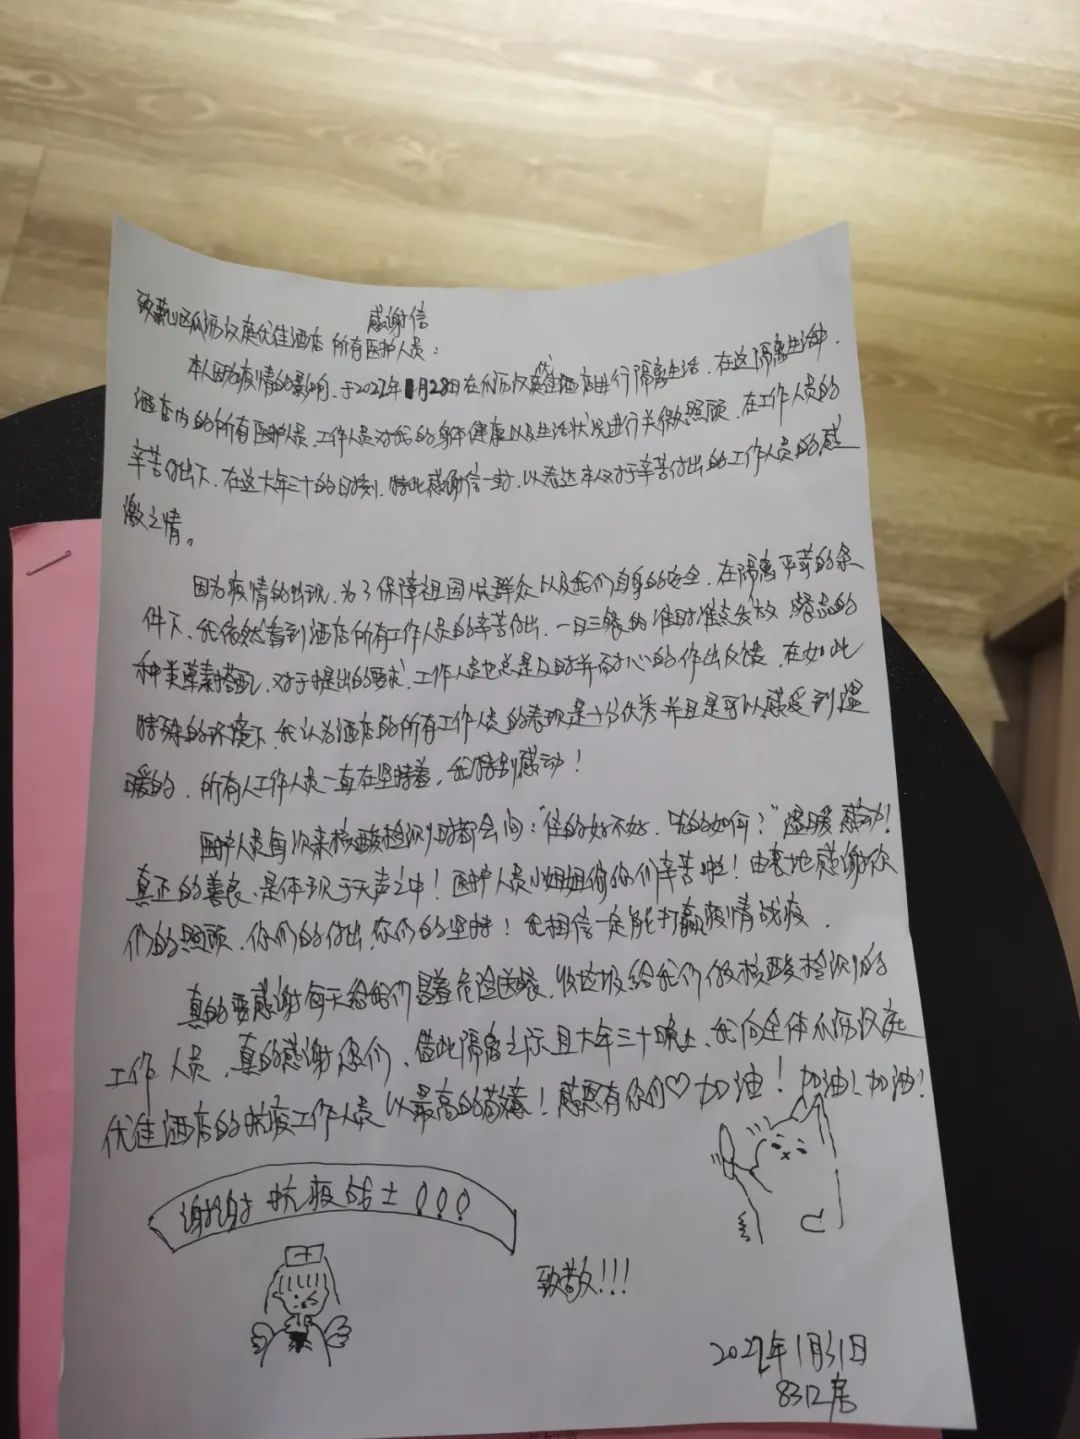 感谢信
致萧山区瓜沥汉庭优佳酒店所有医护人员：
本人因为疫情的影响，于2022年1月28日在瓜沥汉庭优佳酒店进行隔离生活，在这隔离生活中，
酒店内的所有医护人员，工作人员对我的身体健康以及生活状况进行关微照顾，在工作人员的
辛苦付出下，在这大年三十的日子，特此感谢信一封，以表达本人对于辛苦付出的工作人员的感
激之情。
因为疫情的出现，为了保障祖国人民群众以及我们自身的安全，在隔离严苛的条
件下，我依然看到酒店所有工作人员的辛苦付出，一日三餐的准时准点发放，餐品的
种类荤素搭配，对于提出的要求，工作人员也总是及时并耐心的作出反馈，在如此
特殊的环境下，我认为酒店的所有工作人员的表现是十分优秀并且是可以感受到温
暖的，所有人工作人员一直在坚持着，我特别感动！
医护人员每次来核酸检测时都会问：“住的好不好，吃的如何？”温暖感动！
真正的善良，是体现于无声之中！医护人员小姐姐们你们辛苦啦！由衷地感谢你
们的照顾，你们的付出，你们的坚持！我相信一定能打赢疫情战疫，
真的要感谢每天给我们冒着危险送餐，收垃圾给我们做核酸检测的
工作人员，真的感谢您们，借此隔离之际且大年三十晚上，我向全体瓜沥汉庭
优佳酒店的抗疫工作人员以最高的敬意！感恩有你们♡加油！加油！加油！
谢谢抗疫战士！！！
致敬！！！
2022年1月31日
8312房